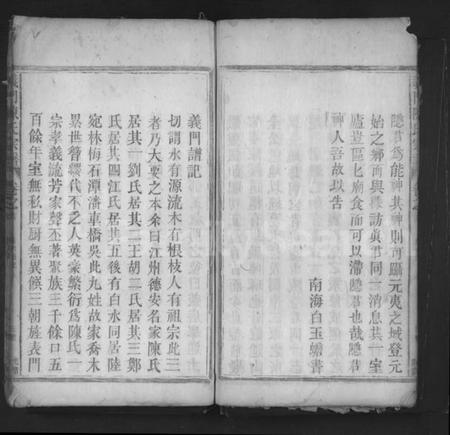 隱君為能神其神則可躡元夷之域登元
始之鄉而與穆訪真君同一清息其一室
廬豈區匕廟食而可以滯隱君也哉隱君
神人吾故以告
南海白玉蟾書
義門譜記
切謂水有源流木有根枝人有祖宗此三
者乃大要之本余曰江州德安名家陳氏
居其一劉氏居其二王胡二氏居其三鄭
氏居其四江氏居其五後有白水同居陸
宛林梅石潭潘車橋吳此九姓故家喬木
累世簪纓代不乏人英豪繁衍為陳氏一
宗孝義流芳家聲丕著聚族三千餘口五
百餘年室無私財厨無異饌三朝旌表門